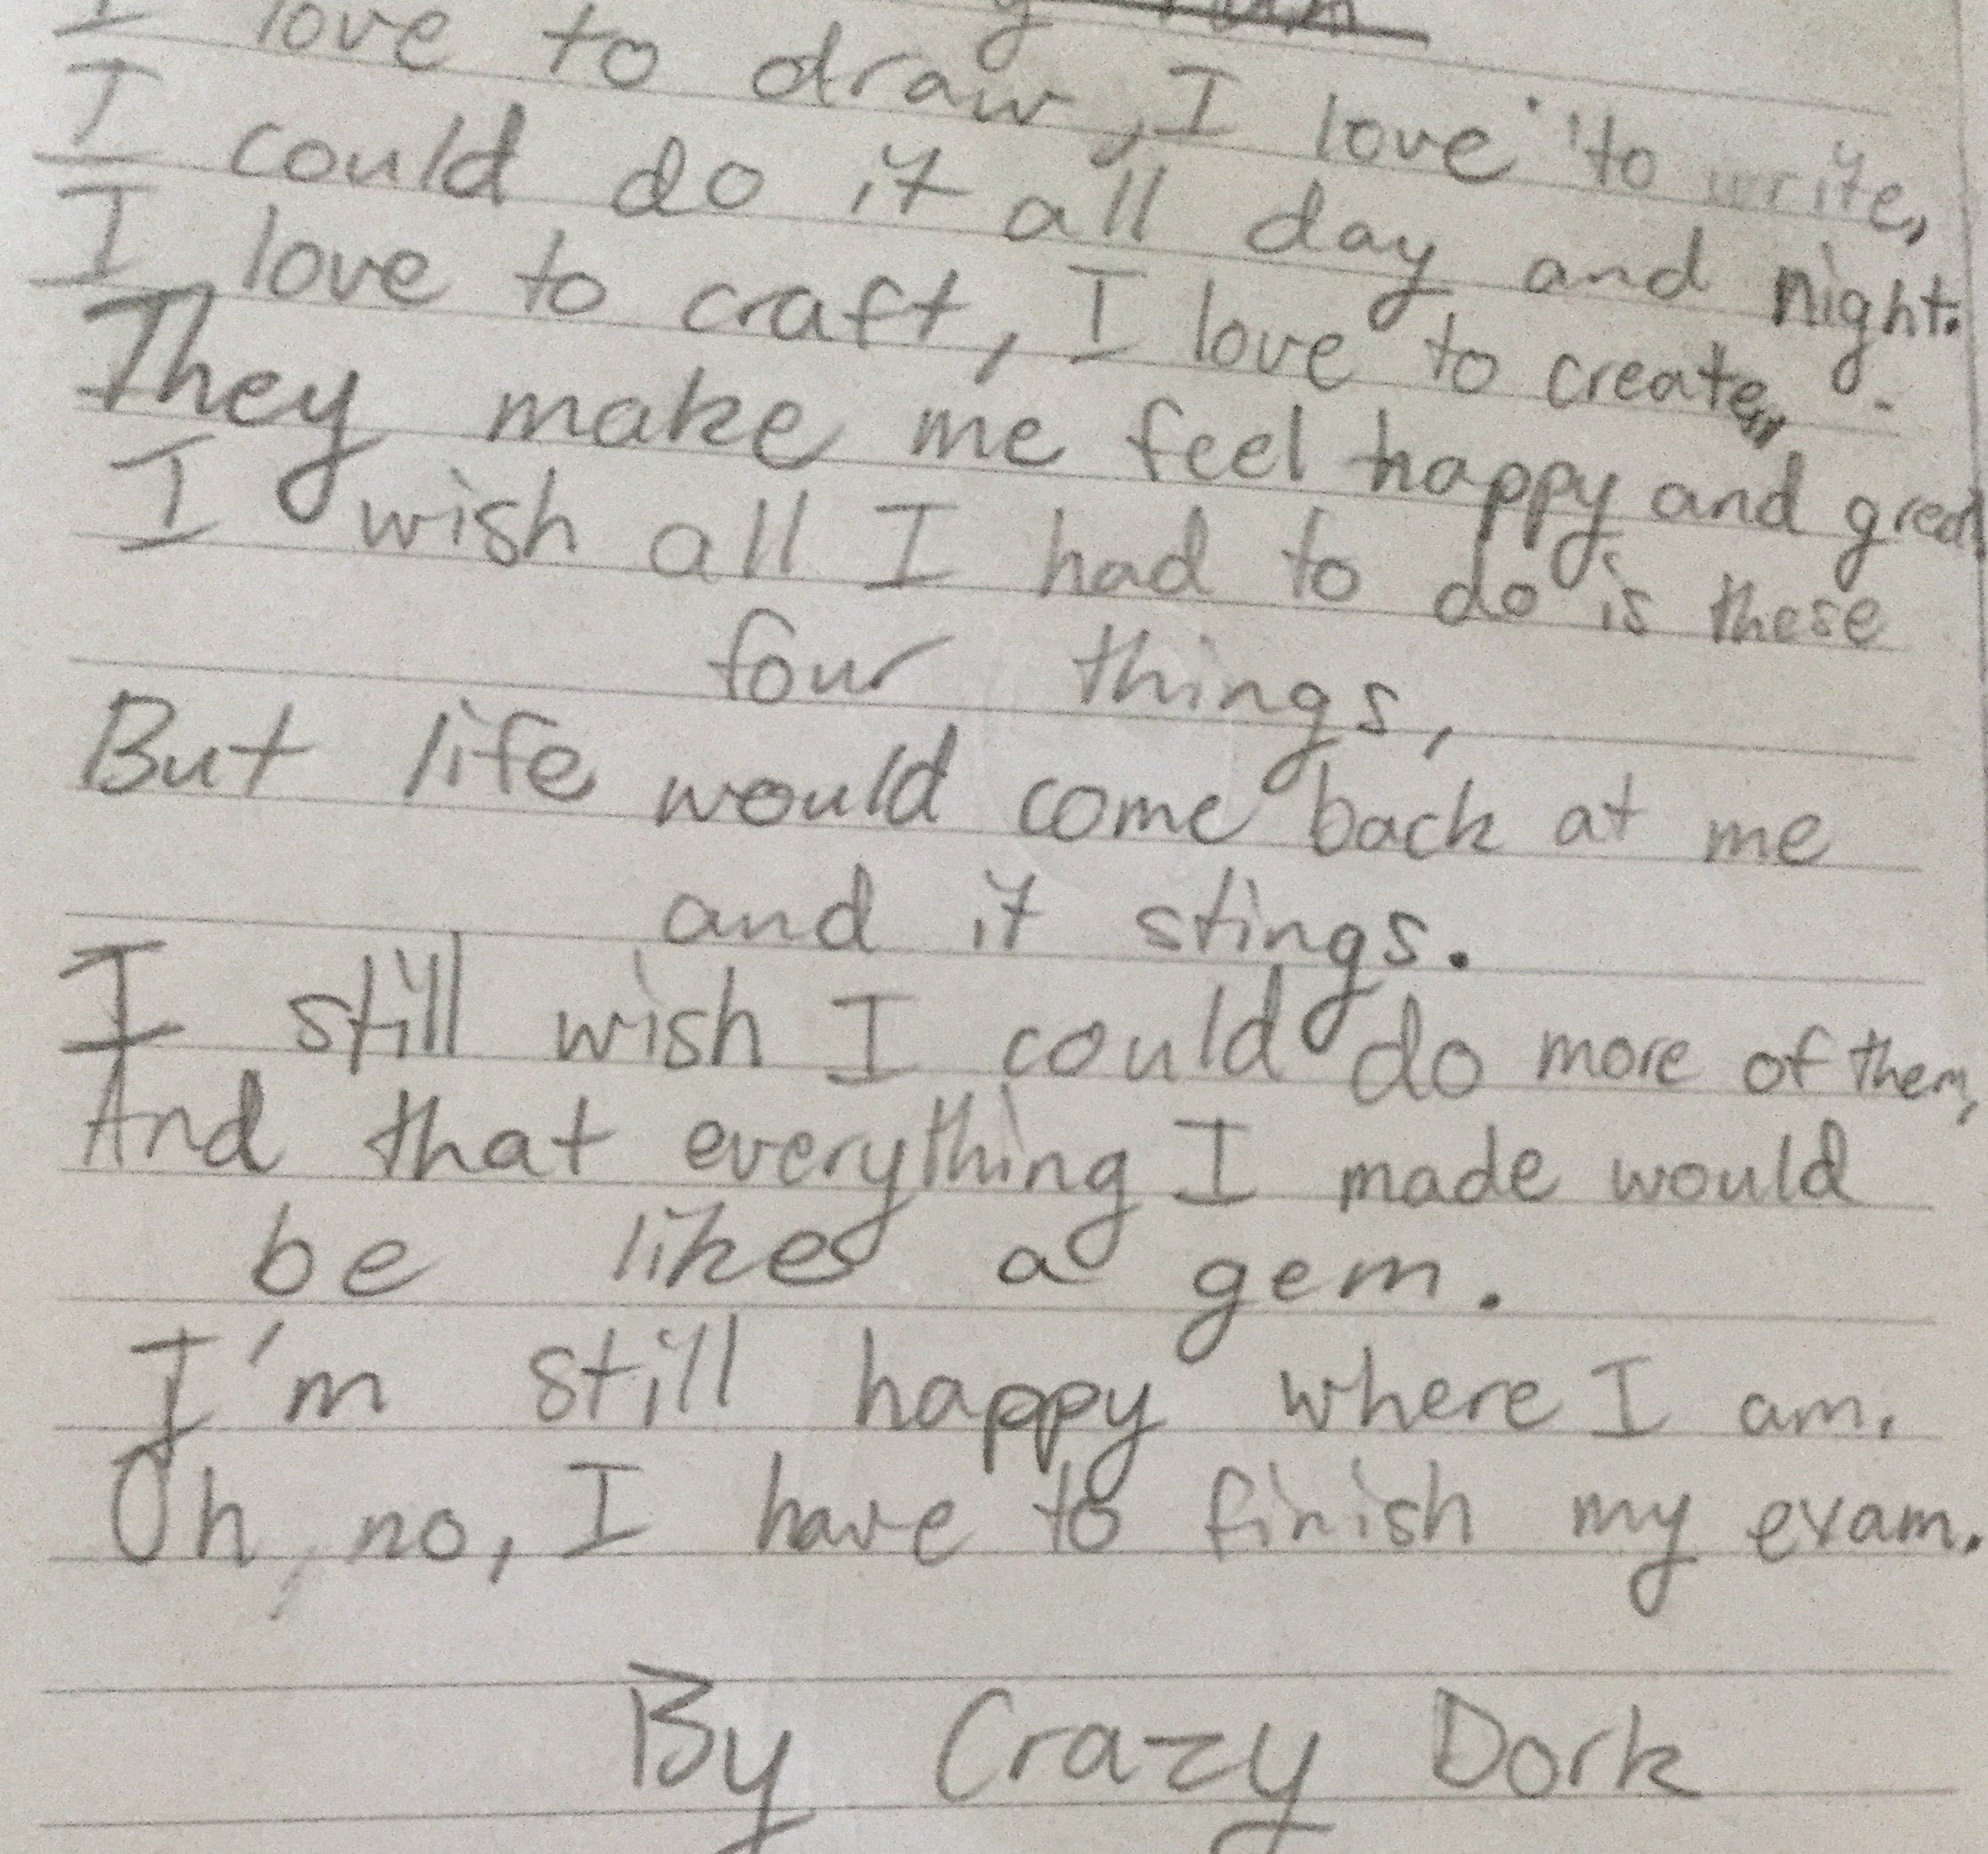 I love to draw, I love to write,
I could do it all day and night.
I love to craft, I love to create,
They make me feel happy and great
I wish all I had to do is these
four things,
But life would come back at me
and it stings.
I still wish I could do more of them,
And that everything I made would
be like a gem.
I'm still happy where I am.
Oh, no, I have to finish my exam.
By Crazy Dork